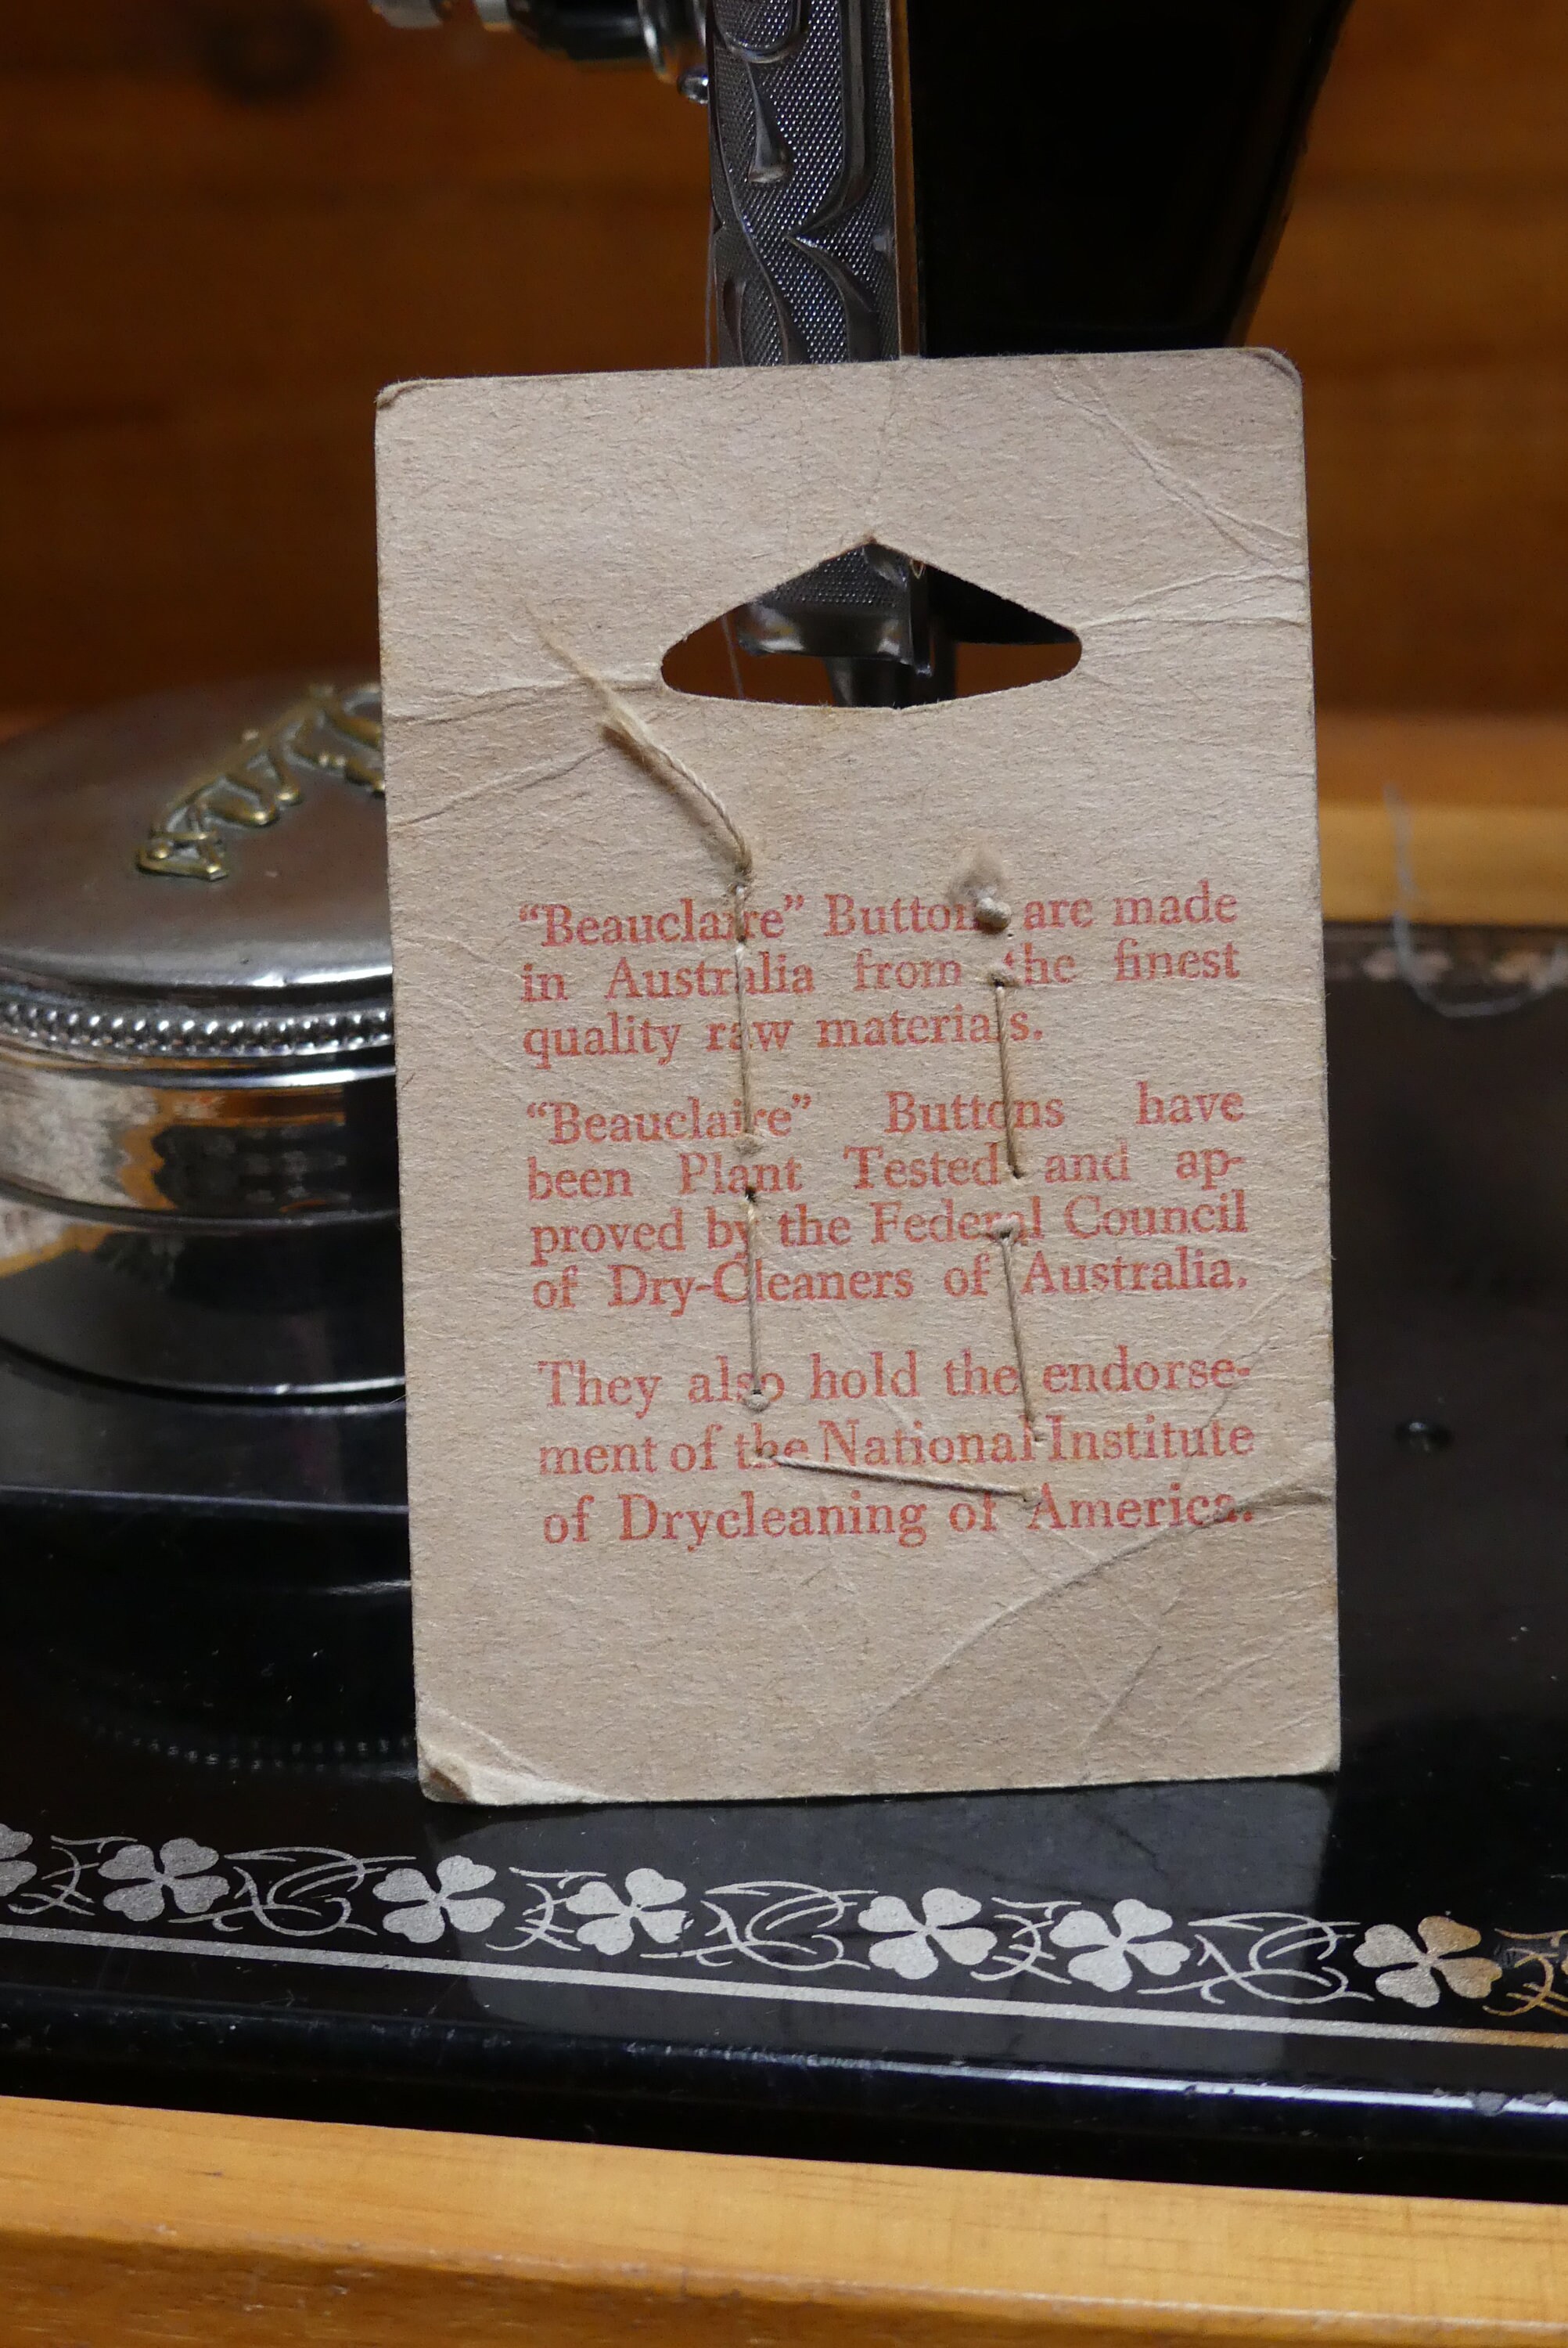 “Beauclaire” Buttons are made
in Australia from the finest
quality raw materials.
“Beauclaire” Buttons have
been Plant Tested and ap-
proved by the Federal Council
of Dry-Cleaners of Australia.
They also hold the endorse-
ment of the National Institute
of Drycleaning of America.